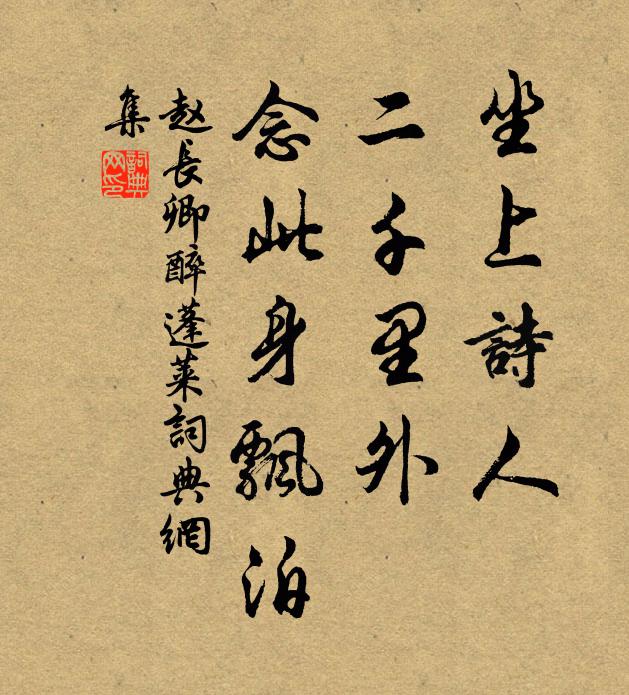 坐上詩人
二千里外
念此身飄泊
赵長卿醉蓬莱詞典網
集
詞典
网印